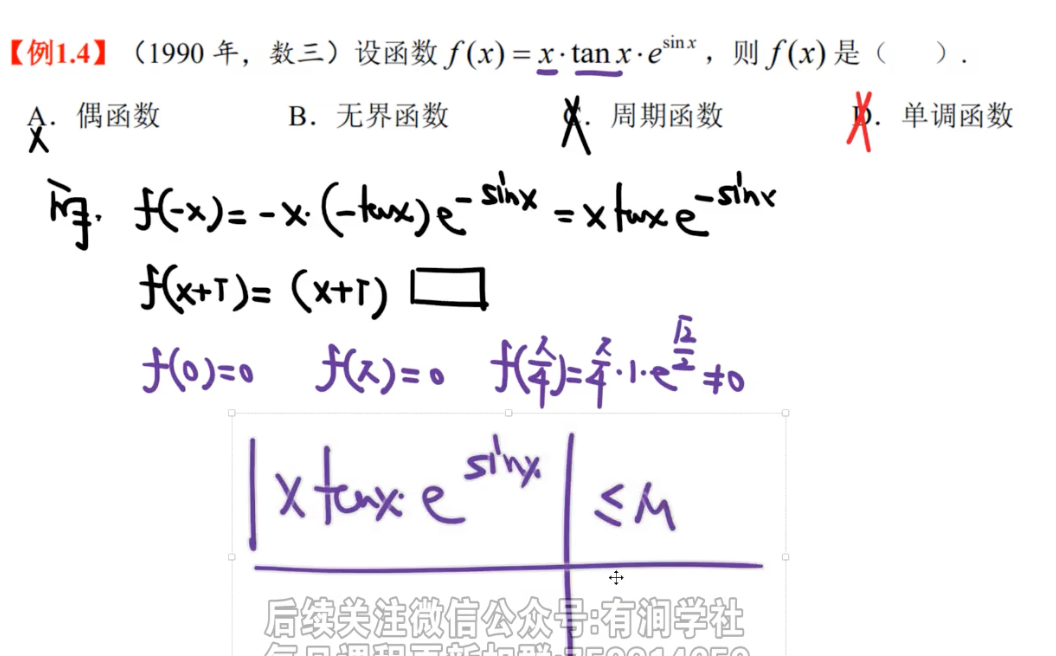 【例1.4】（1990 年，数三）设函数 f(x) = x · tan x · e^{sin x}，则 f(x) 是（ ）.
A. 偶函数 B. 无界函数 C. 周期函数 D. 单调函数
x
f(-x)=-x·(-tanx)e^{-sinx}=xtanxe^{-sinx}
f(x+T)=(x+T)
f(0)=0 f(π)=0 f(π/4)=π/4·1·e^{√2/2}≠0
|xtanx·e^{sinx}|≤M
后续关注微信公众号:有润学社